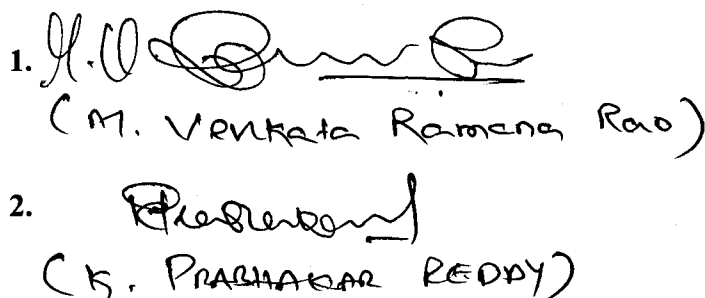 1.
(M. Venkata Ramana Rao)
2.
(K. PRABHAKAR REDDY)